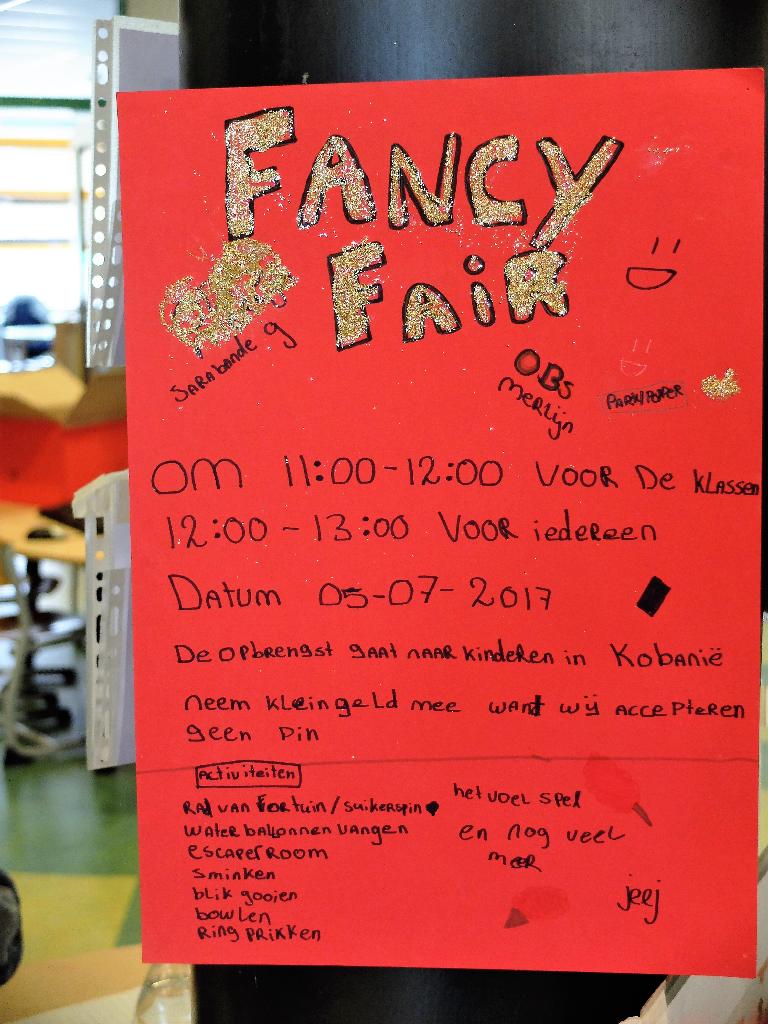 FANCY
FAIR
SARABANDE 9
OBS
Merlijn
OM 11:00-12:00 VOOR De KLASSEN
12:00-13:00 VOOR iedereen
Datum 05-07-2017
De opbrengst gaat naar kinderen in Kobanië
neem kleingeld mee want wij accepteren
geen pin
Activiteiten
RAd van Fortuin/suikerspin
water ballonnen vangen
escaperroom
sminken
blik gooien
bowlen
Ring prikken
het voel spel
en nog veel
meer
jeej